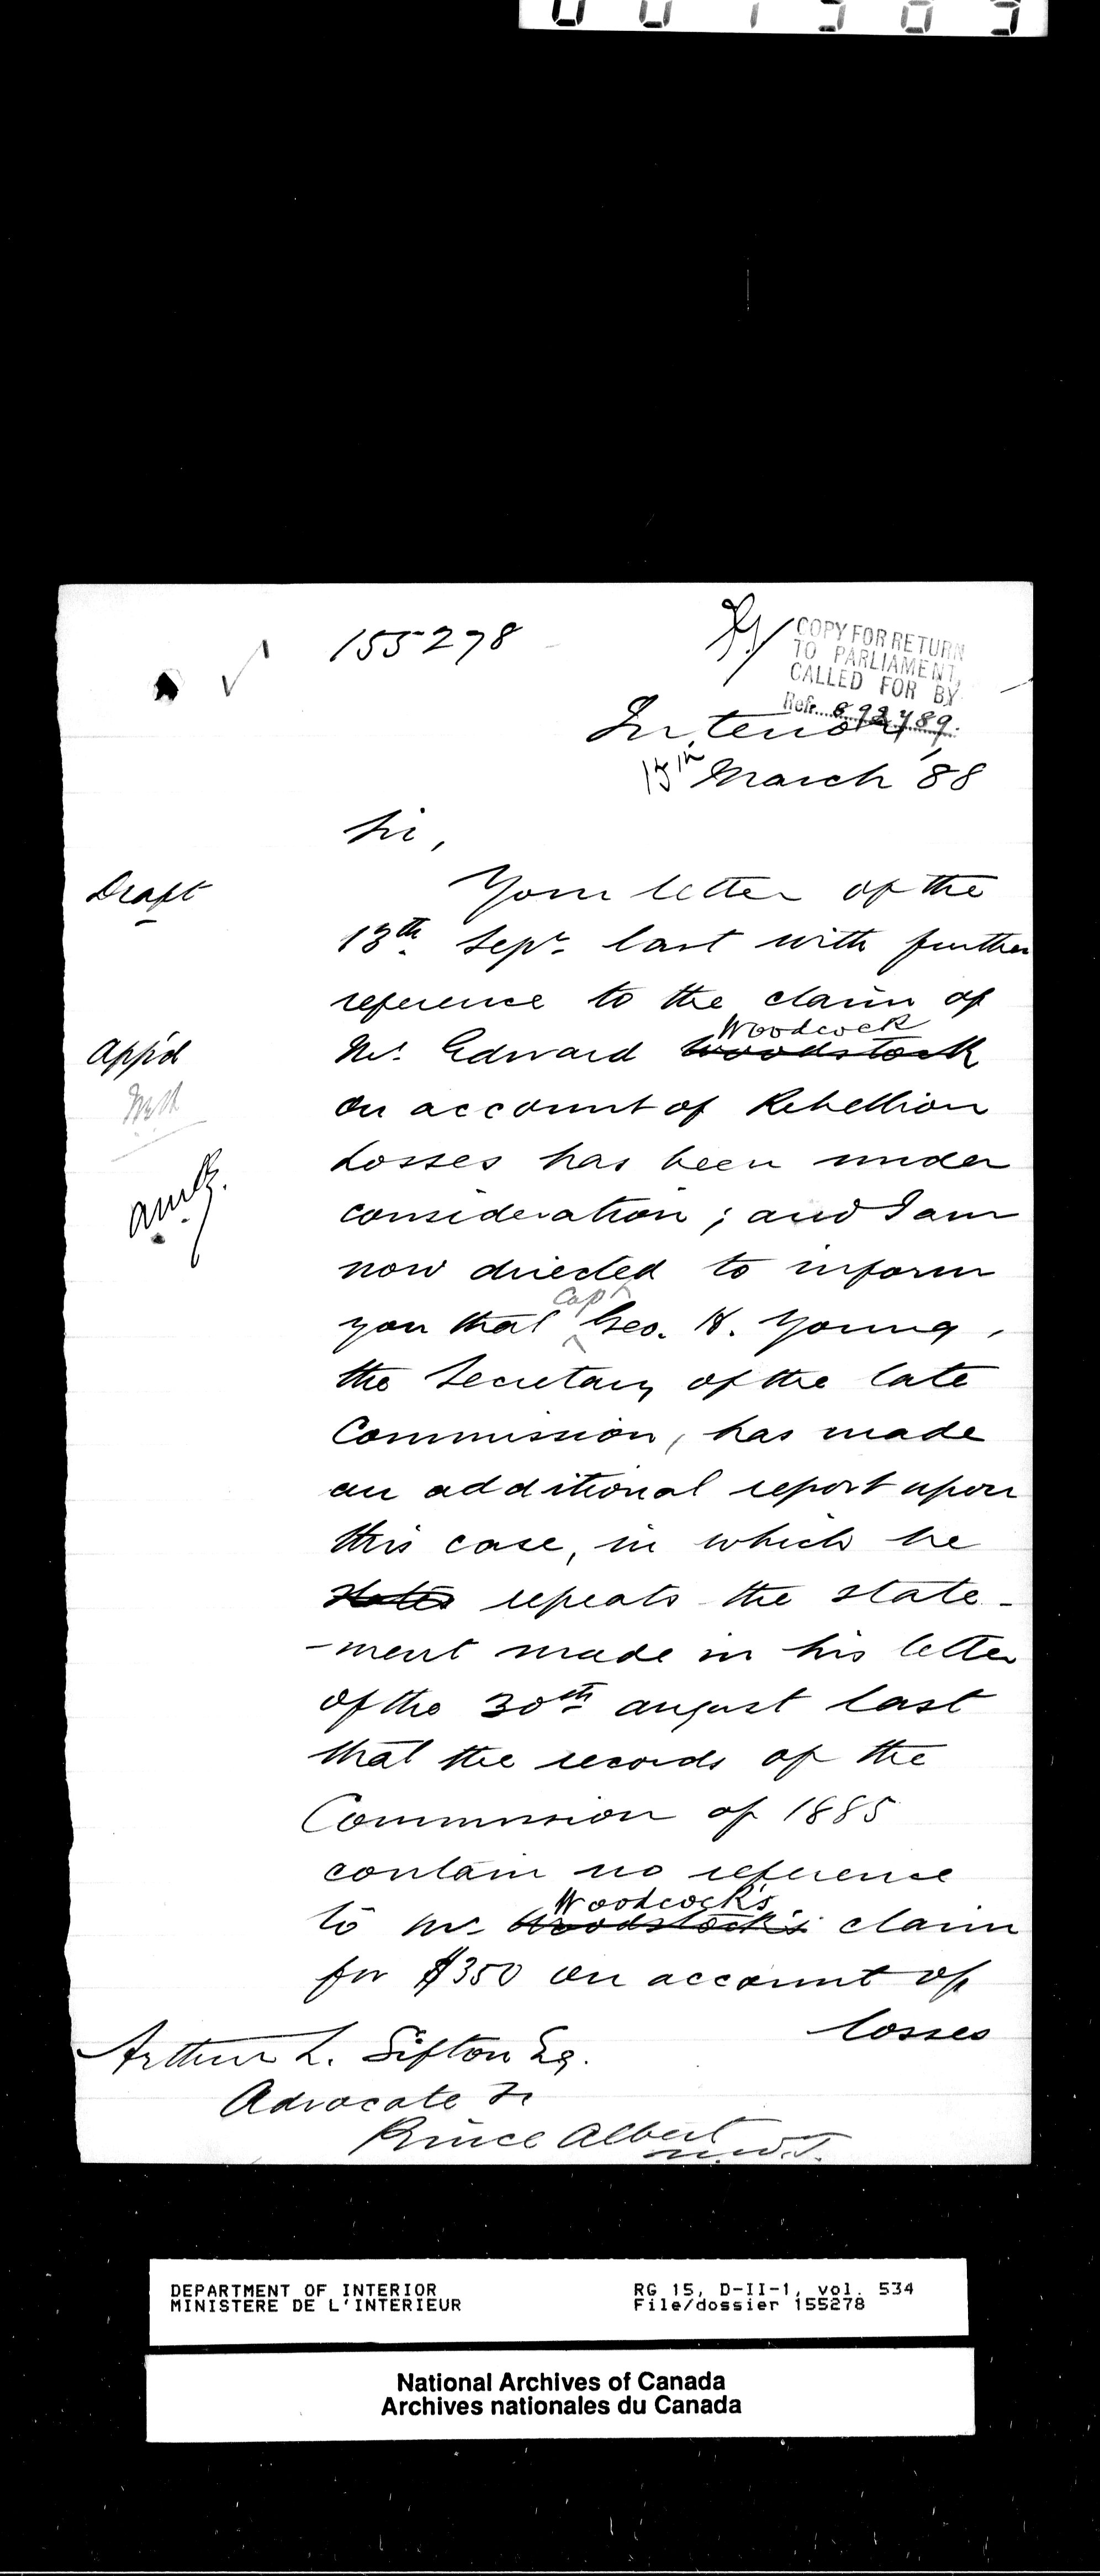 155278
COPY FOR RETURN
TO PARLIAMENT,
CALLED FOR BY
Refr. 892789.
Interior,
15th March '88
Sir,
Draft
Your letter of the
13th Sepr. last with further
reference to the claim of
Woodcock
App'd
Mr. Edward Woodstock
on account of Rebellion
Losses has been under
consideration; and I am
now directed to inform
Capt
you that Geo. H. Young,
the Secretary of the late
Commission, has made
an additional report upon
this case, in which he
states repeats the state-
-ment made in his letter
of the 30th august last
that the records of the
Commission of 1885
contain no reference
Woodcock's
to Mr. Woodstock's claim
for $350 on account of
losses
Arthur L. Sifton Esq.
Advocate &c
Prince Albert
N.W.T.
DEPARTMENT OF INTERIOR
MINISTERE DE L'INTERIEUR
RG 15, D-II-1, vol. 534
File/dossier 155278
National Archives of Canada
Archives nationales du Canada